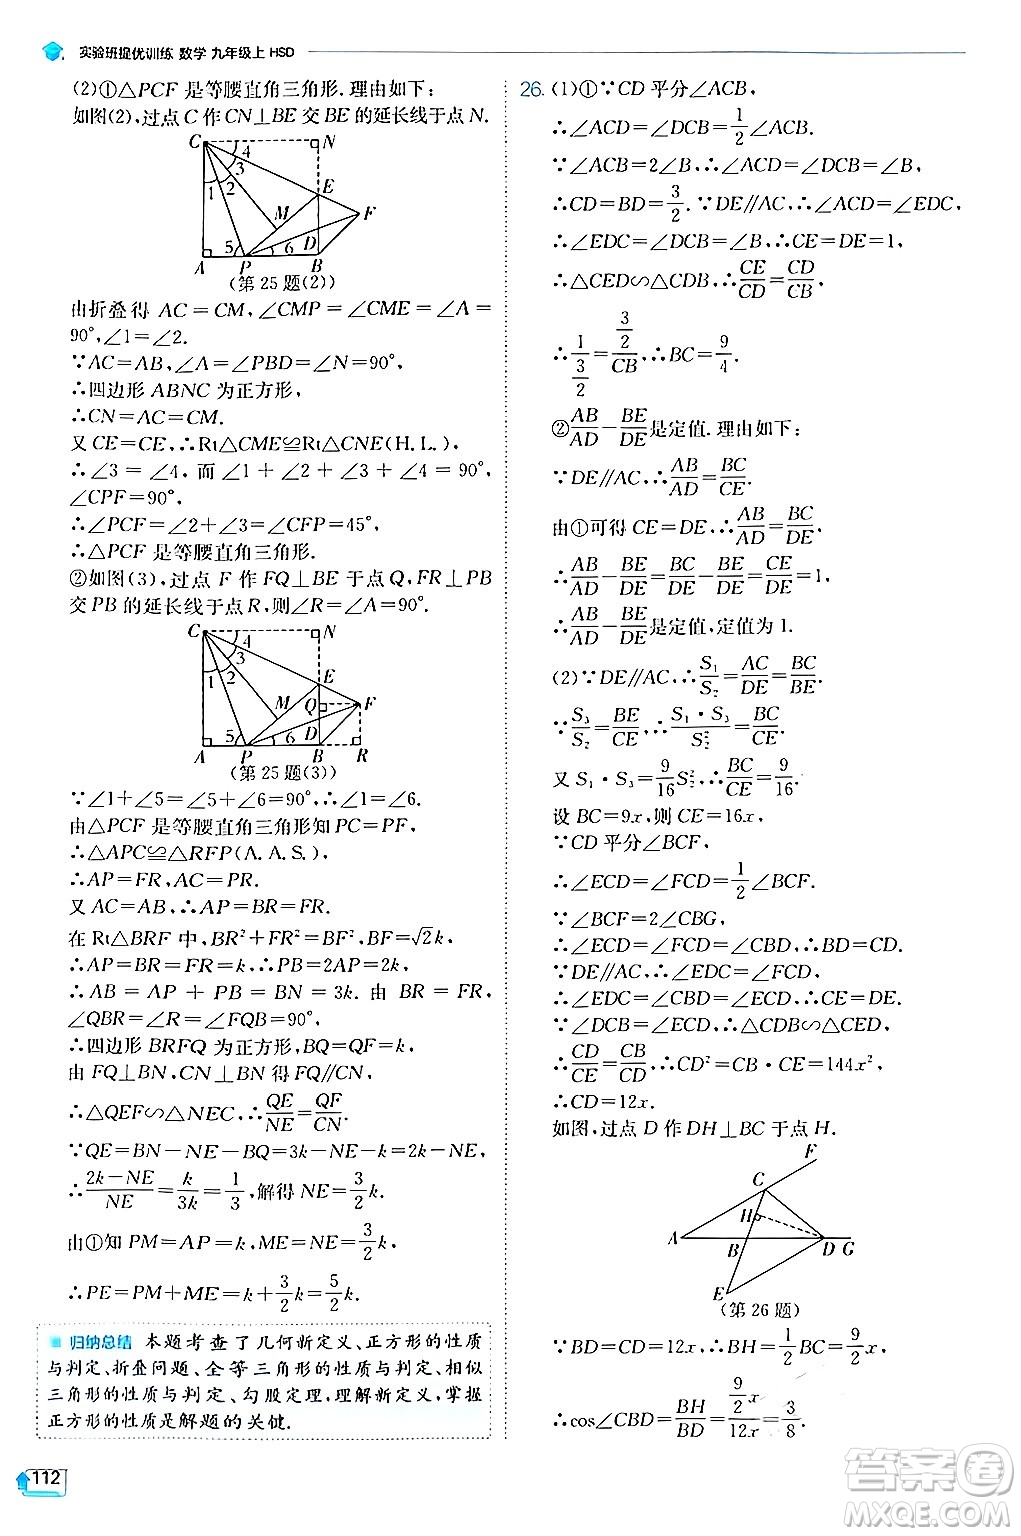 实验班提优训练 数学 九年级上 HSD
(2)①△PCF是等腰直角三角形.理由如下:
如图(2),过点C作CN⊥BE交BE的延长线于点N.
C N 4 3 1 2 E M F 5 6 D A P B
(第25题(2))
由折叠得AC=CM,∠CMP=∠CME=∠A=
90°,∠1=∠2.
∵AC=AB,∠A=∠PBD=∠N=90°,
∴四边形ABNC为正方形,
∴CN=AC=CM.
又CE=CE,∴Rt△CME≌Rt△CNE(H.L.),
∴∠3=∠4,而∠1+∠2+∠3+∠4=90°,
∠CPF=90°,
∴∠PCF=∠2+∠3=∠CFP=45°,
∴△PCF是等腰直角三角形.
②如图(3),过点F作FQ⊥BE于点Q,FR⊥PB
交PB的延长线于点R,则∠R=∠A=90°.
C N 4 3 1 2 E M Q F 5 6 D A P B R
(第25题(3))
∵∠1+∠5=∠5+∠6=90°,∴∠1=∠6.
由△PCF是等腰直角三角形知PC=PF,
∴△APC≌△RFP(A.A.S.),
∴AP=FR,AC=PR.
又AC=AB,∴AP=BR=FR.
在Rt△BRF中,BR²+FR²=BF²,BF=√2k,
∴AP=BR=FR=k,∴PB=2AP=2k.
∴AB=AP+PB=BN=3k.由BR=FR,
∠QBR=∠R=∠FQB=90°,
∴四边形BRFQ为正方形,BQ=QF=k,
由FQ⊥BN,CN⊥BN得FQ∥CN,
∴△QEF∽△NEC,∴QE/NE=QF/CN.
∵QE=BN-NE-BQ=3k-NE-k=2k-NE,
∴(2k-NE)/NE=k/3k=1/3,解得NE=3/2k.
由①知PM=AP=k,ME=NE=3/2k,
∴PE=PM+ME=k+3/2k=5/2k.
归纳总结 本题考查了几何新定义、正方形的性质
与判定、折叠问题、全等三角形的性质与判定、相似
三角形的性质与判定、勾股定理,理解新定义,掌握
正方形的性质是解题的关键.
112
26.(1)①∵CD平分∠ACB,
∴∠ACD=∠DCB=1/2∠ACB.
∵∠ACB=2∠B,∴∠ACD=∠DCB=∠B,
∴CD=BD=3/2.∵DE∥AC,∴∠ACD=∠EDC,
∴∠EDC=∠DCB=∠B,∴CE=DE=1,
∴△CED∽△CDB,∴CE/CD=CD/CB,
∴1/(3/2)=(3/2)/CB,∴BC=9/4.
②AB/AD-BE/DE是定值.理由如下:
∵DE∥AC,∴AB/AD=BC/CE.
由①可得CE=DE,∴AB/AD=BC/DE,
∴AB/AD-BE/DE=BC/DE-BE/DE=CE/DE=1,
∴AB/AD-BE/DE是定值,定值为1.
(2)∵DE∥AC,∴S₁/S₂=AC/DE=BC/BE.
∵S₃/S₂=BE/CE,∴S₁·S₃/S₂²=BC/CE.
又S₁·S₃=9/16S₂²,∴BC/CE=9/16.
设BC=9x,则CE=16x,
∵CD平分∠BCF,
∴∠ECD=∠FCD=1/2∠BCF.
∵∠BCF=2∠CBG,
∴∠ECD=∠FCD=∠CBD,∴BD=CD.
∵DE∥AC,∴∠EDC=∠FCD,
∴∠EDC=∠CBD=∠ECD,∴CE=DE.
∵∠DCB=∠ECD,∴△CDB∽△CED,
∴CD/CE=CB/CD,∴CD²=CB·CE=144x²,
∴CD=12x.
如图,过点D作DH⊥BC于点H.
F C H A B D G E
(第26题)
∵BD=CD=12x,∴BH=1/2BC=9/2x,
∴cos∠CBD=BH/BD=(9/2x)/12x=3/8.
答案圈
MXQE.COM